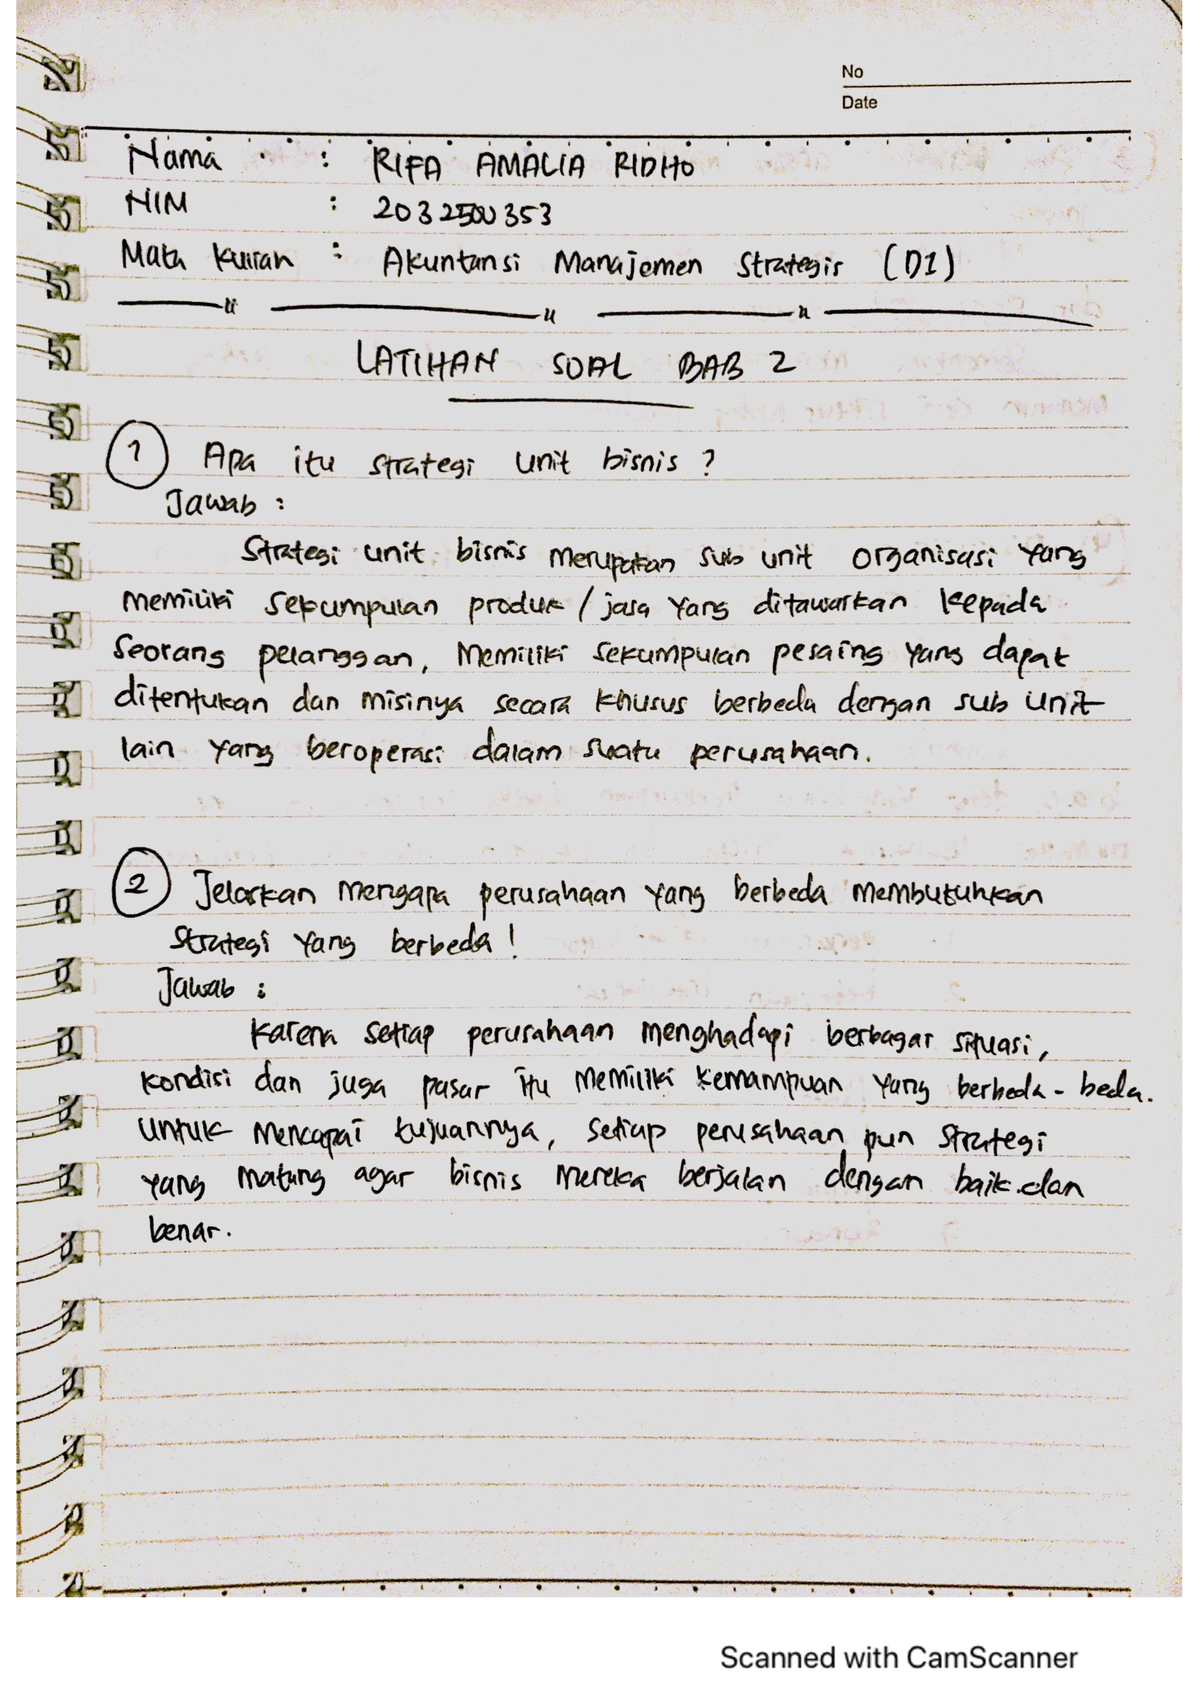 No
Date
Nama : RIFA AMALIA RIDHO
NIM : 2032500353
Mata Kuliah : Akuntansi Manajemen Strategis (D1)
LATIHAN SOAL BAB 2
1 Apa itu strategi unit bisnis ?
Jawab :
Strategi unit bisnis merupakan sub unit organisasi yang
memiliki sekumpulan produk / jasa yang ditawarkan kepada
seorang pelanggan, memiliki sekumpulan pesaing yang dapat
ditentukan dan misinya secara khusus berbeda dengan sub unit
lain yang beroperasi dalam suatu perusahaan.
2 Jelaskan mengapa perusahaan yang berbeda membutuhkan
strategi yang berbeda !
Jawab :
Karena setiap perusahaan menghadapi berbagai situasi,
kondisi dan juga pasar itu memiliki kemampuan yang berbeda - beda.
Untuk mencapai tujuannya, setiap perusahaan pun strategi
yang matang agar bisnis mereka berjalan dengan baik dan
benar.
Scanned with CamScanner